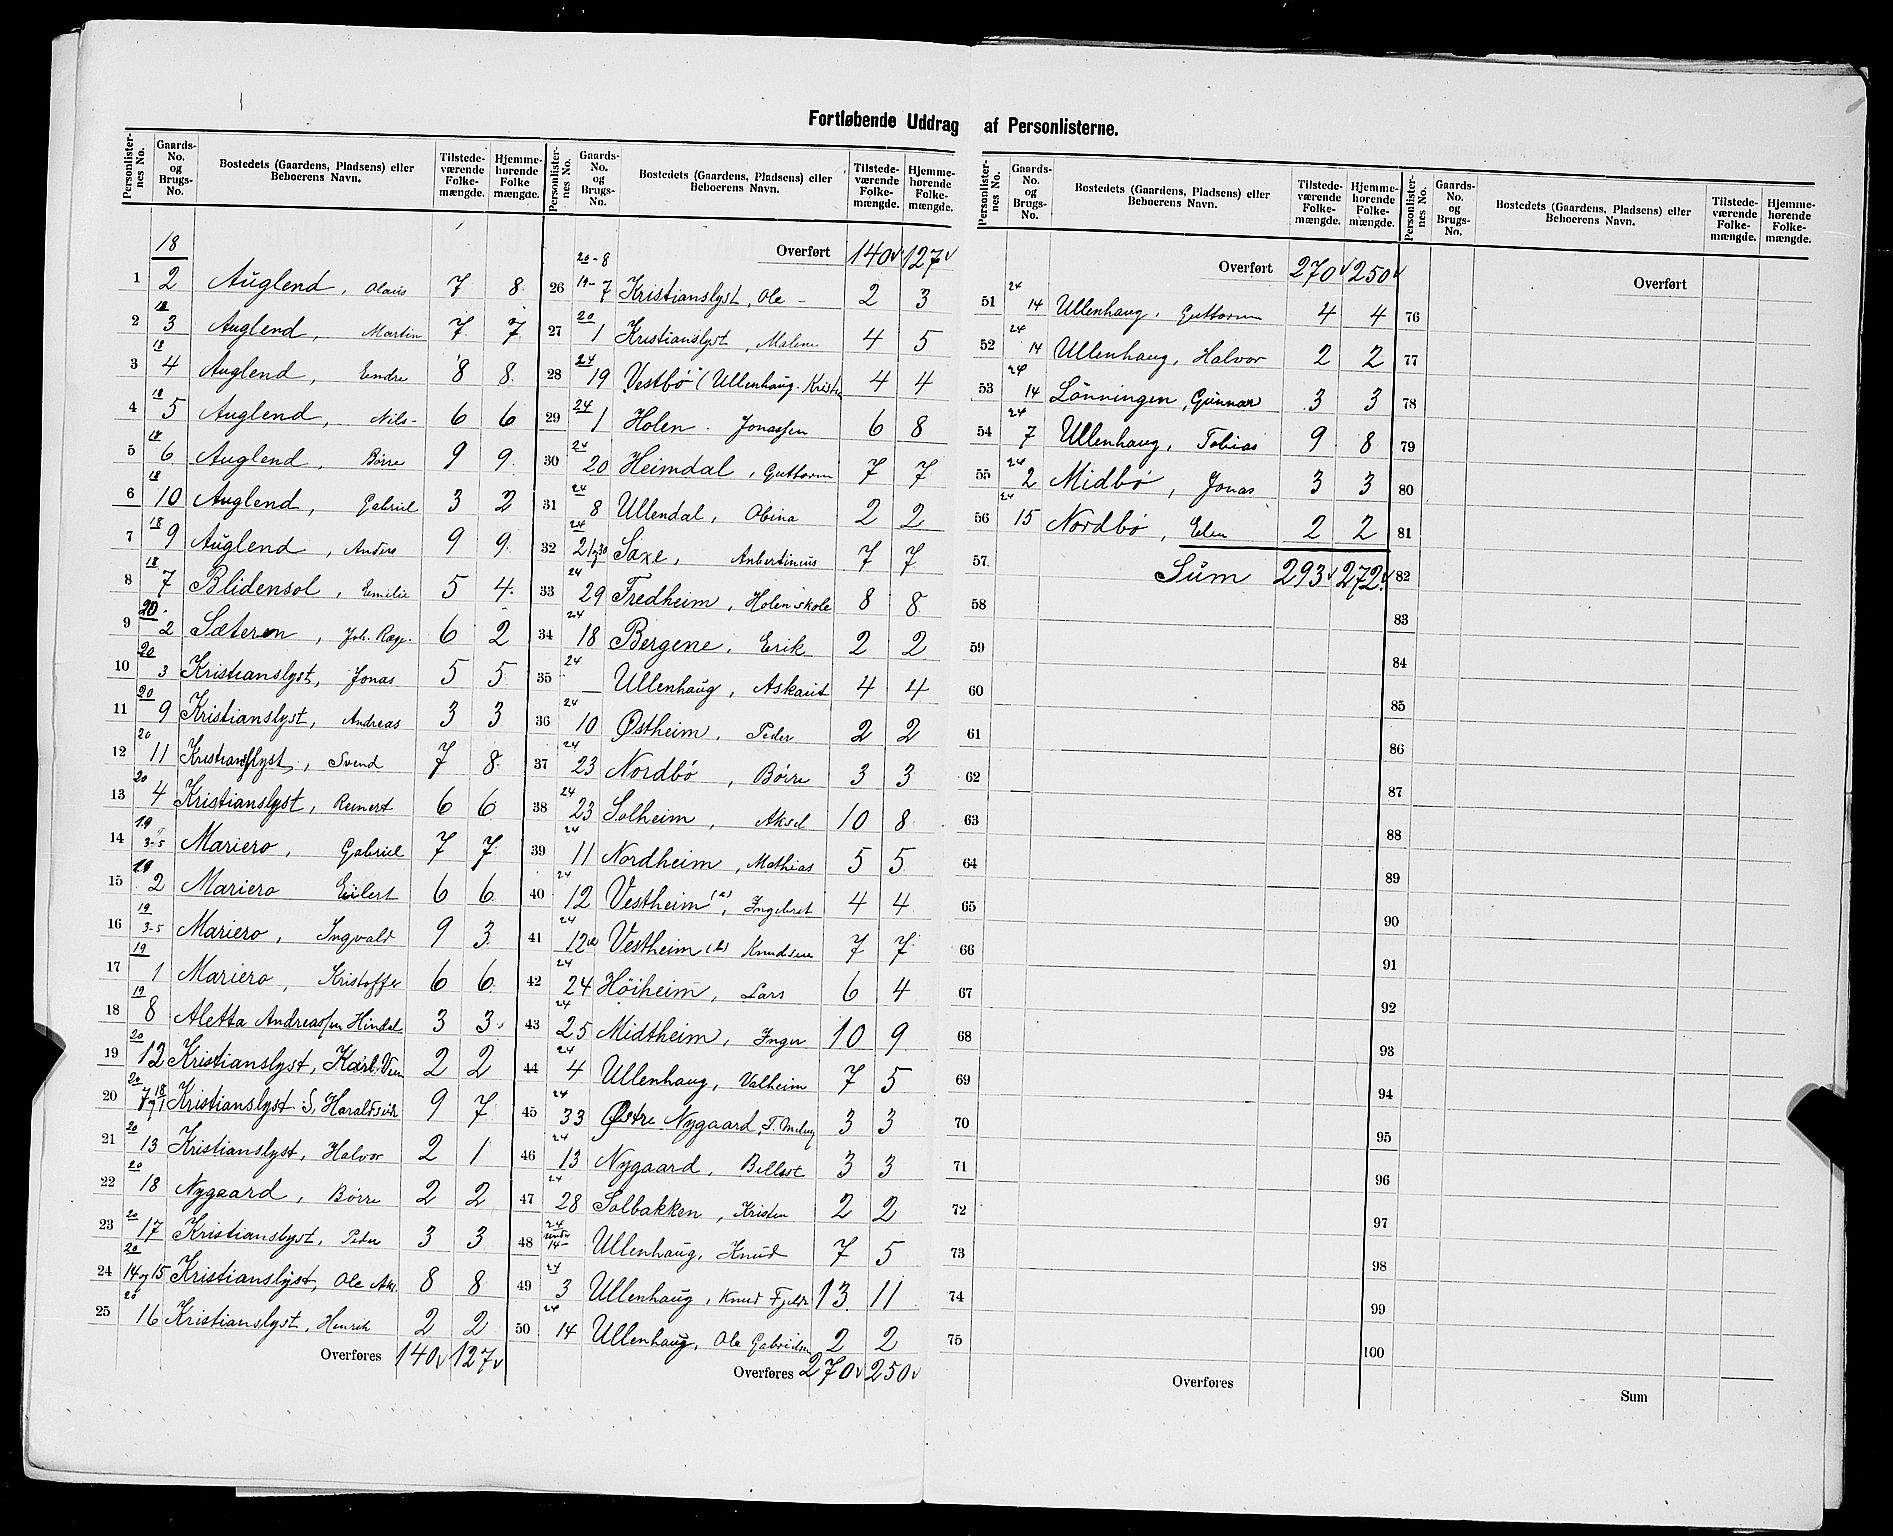 Fortløbende Uddrag af Personlisterne.
Personlisternes No. | Gaards-No. og Brugs-No. | Bostedets (Gaardens, Pladsens) eller Beboerens Navn. | Tilstedeværende Folkemængde. | Hjemmehørende Folkemængde.
1 | 18 2 | Auglend, Olaus | 7 | 8
2 | 18 3 | Auglend, Martin | 7 | 7
3 | 18 4 | Auglend, Endre | 8 | 8
4 | 18 5 | Auglend, Nils | 6 | 6
5 | 18 6 | Auglend, Børre | 9 | 9
6 | 18 10 | Auglend, Gabriel | 3 | 2
7 | 18 9 | Auglend, Anders | 9 | 9
8 | 18 7 | Blidensol, Emilie | 5 | 4
9 | 20 2 | Sæteren, Joh. Rage | 6 | 2
10 | 20 3 | Kristianslyst, Jonas | 5 | 5
11 | 20 9 | Kristianslyst, Andreas | 3 | 3
12 | 20 11 | Kristianslyst, Svend | 7 | 8
13 | 20 4 | Kristianslyst, Reinert | 6 | 6
14 | 19 3-5 | Mariero, Gabriel | 7 | 7
15 | 19 2 | Mariero Eilert | 6 | 6
16 | 19 3-5 | Mariero, Ingvald | 9 | 3
17 | 19 1 | Mariero, Kristoffer | 6 | 6
18 | 19 8 | Aletta Andreassen Hindal | 3 | 3
19 | 20 12 | Kristianslyst, Karl | 2 | 2
20 | 20 7 og 18 1 | Kristianslyst S. Haraldsvik | 9 | 7
21 | 20 13 | Kristianslyst, Halvor | 2 | 1
22 | 20 18 | Nygaard, Børre | 2 | 2
23 | 20 17 | Kristianslyst, Peder | 3 | 3
24 | 20 14 og 15 | Kristianslyst, Ole Ask. | 8 | 8
25 | 20 16 | Kristianslyst, Henrik | 2 | 2
Overføres 140 127
Personlisternes No. | Gaards-No. og Brugs-No. | Bostedets (Gaardens, Pladsens) eller Beboerens Navn. | Tilstedeværende Folkemængde. | Hjemmehørende Folkemængde.
Overført 140 127
26 | 20-8 19-7 | Kristianslyst, Ole | 2 | 3
27 | 20 1 | Kristianslyst, Malene | 4 | 5
28 | 24 19 | Vestbø (Ullenhaug. Kristen | 4 | 4
29 | 24 1 | Holen. Jonassen | 6 | 8
30 | 24 20 | Heimdal, Guttorm | 7 | 7
31 | 24 8 | Ullendal, Obina | 2 | 2
32 | 24 21 og 30 | Saxe, Anbertinius | 7 | 7
33 | 24 29 | Fredheim, Holen skole | 8 | 8
34 | 24 18 | Bergene, Erik | 2 | 2
35 | 24 — | Ullenhaug, Askaut | 4 | 4
36 | 24 10 | Østheim, Peder | 2 | 2
37 | 24 23 | Nordbø, Børre | 3 | 3
38 | 24 23 | Solheim, Aksel | 10 | 8
39 | 24 11 | Nordheim, Mathias | 5 | 5
40 | 24 12 | Vestheim (a), Ingebret | 4 | 4
41 | 24 12 | Vestheim (b) Knudsen | 7 | 7
42 | 24 24 | Høiheim, Lars | 6 | 4
43 | 24 25 | Midtheim, Inger | 10 | 9
44 | 24 4 | Ullenhaug, Valheim | 7 | 5
45 | 24 33 | Østre Nygaard, T. | 3 | 3
46 | 24 13 | Nygaard, | 3 | 3
47 | 24 28 | Solbakken, Kristen | 2 | 2
48 | 24 under 14 | Ullenhaug, Knud | 7 | 5
49 | 24 3 | Ullenhaug, Knud | 13 | 11
50 | 24 14 | Ullenhaug, Ole Gabrielsen | 2 | 2
Overføres 270 250
Personlisternes No. | Gaards-No. og Brugs-No. | Bostedets (Gaardens, Pladsens) eller Beboerens Navn. | Tilstedeværende Folkemængde. | Hjemmehørende Folkemængde.
Overført 270 250
51 | 24 14 | Ullenhaug, Guttorm | 4 | 4
52 | 24 14 | Ullenhaug, Halvor | 2 | 2
53 | 24 14 | Lønningen, Gunnar | 3 | 3
54 | 24 7 | Ullenhaug, Tobias | 9 | 8
55 | 24 2 | Midbø, Jonas | 3 | 3
56 | 24 15 | Nordbø, Elen | 2 | 2
57 | Sum 293 272
58
59
60
61
62
63
64
65
66
67
68
69
70
71
72
73
74
75
Overføres
Personlisternes No. | Gaards-No. og Brugs-No. | Bostedets (Gaardens, Pladsens) eller Beboerens Navn. | Tilstedeværende Folkemængde. | Hjemmehørende Folkemængde.
Overført
76
77
78
79
80
81
82
83
84
85
86
87
88
89
90
91
92
93
94
95
96
97
98
99
100
Sum